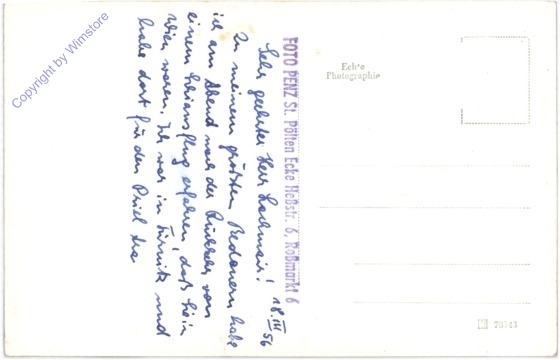 Copyright by Wimstore
FOTO PENZ St. Pölten Ecke Heßstr. 6, Roßmarkt 6
18. III 56
Sehr geehrter Herr
Zu meinem größten Bedauern habe
ich am Abend nach der Rückkehr von
einem Skiausflug erfahren, daß Sie in
Wien waren. Ich war in Türnitz und
habe dort für den
Echte
Photographie